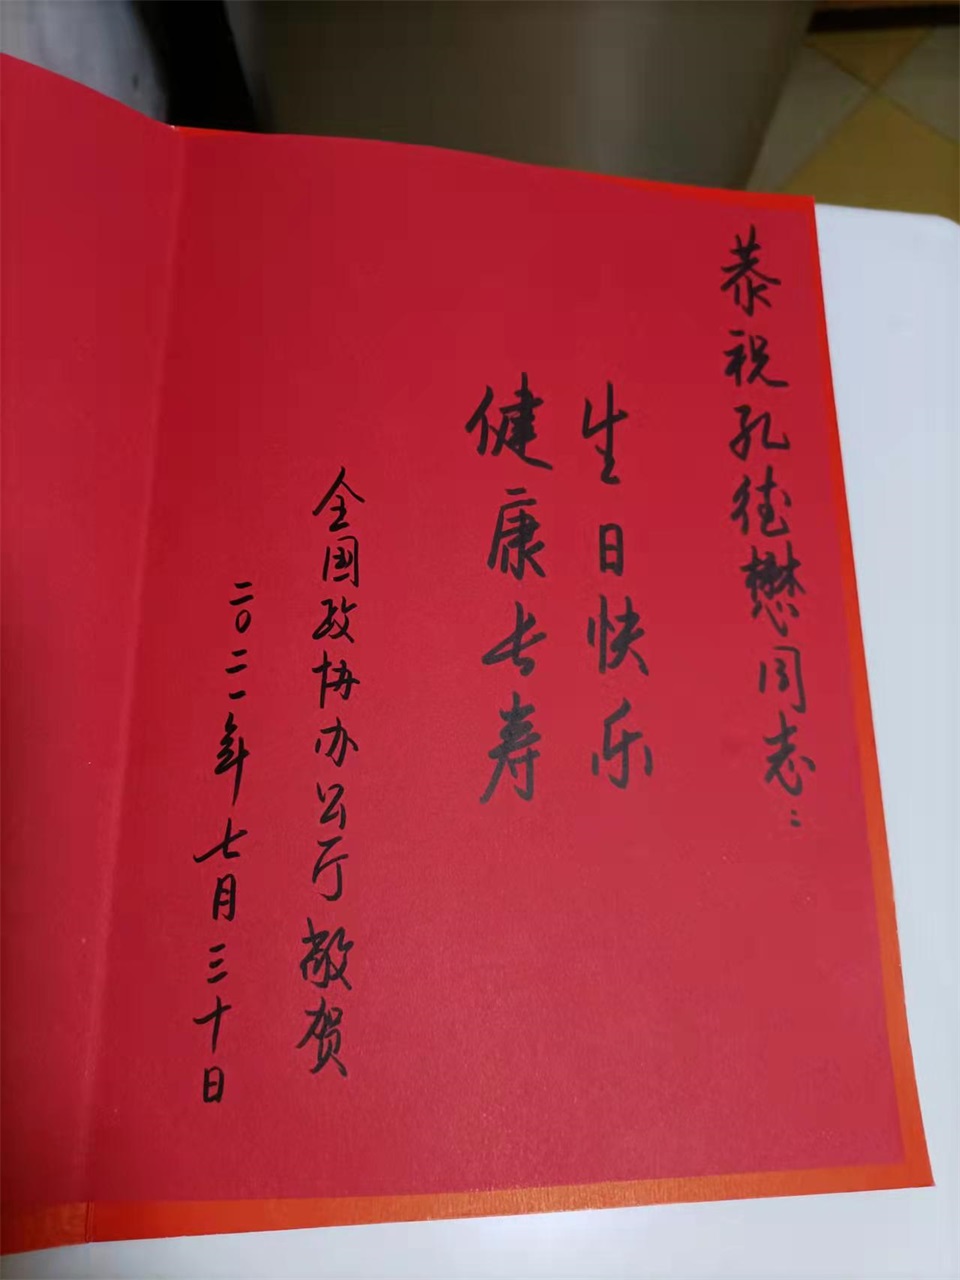 恭祝孔德懋同志：
生日快乐
健康长寿
全国政协办公厅敬贺
二〇二一年七月三十日